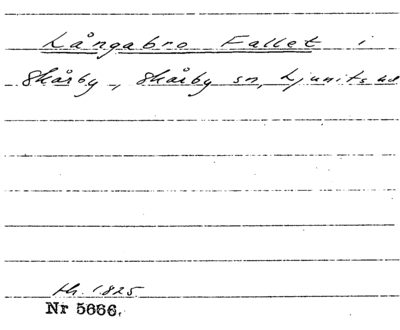 Långabro Fallet i
Skårby, Skårby sn, Ljunits hd
h. 1825
Nr 5666.